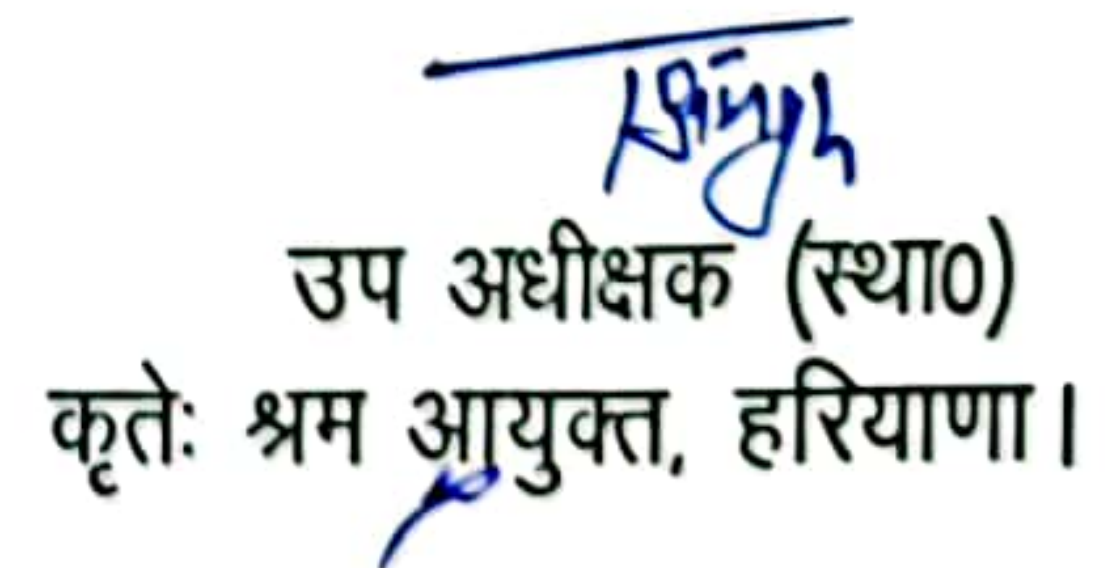 Singh
उप अधीक्षक (स्था0)
कृतेः श्रम आयुक्त, हरियाणा।